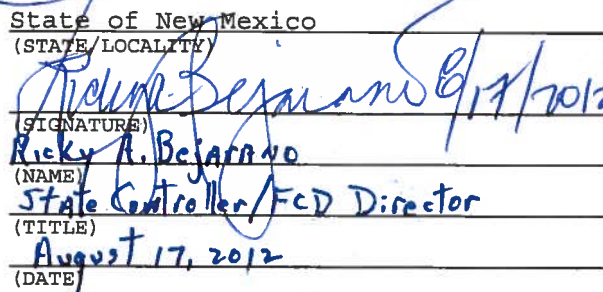 State of New Mexico
(STATE/LOCALITY)
Ricky Bejarano 8/17/2012
(SIGNATURE)
Ricky A. Bejarano
(NAME)
State Controller/FCD Director
(TITLE)
August 17, 2012
(DATE)